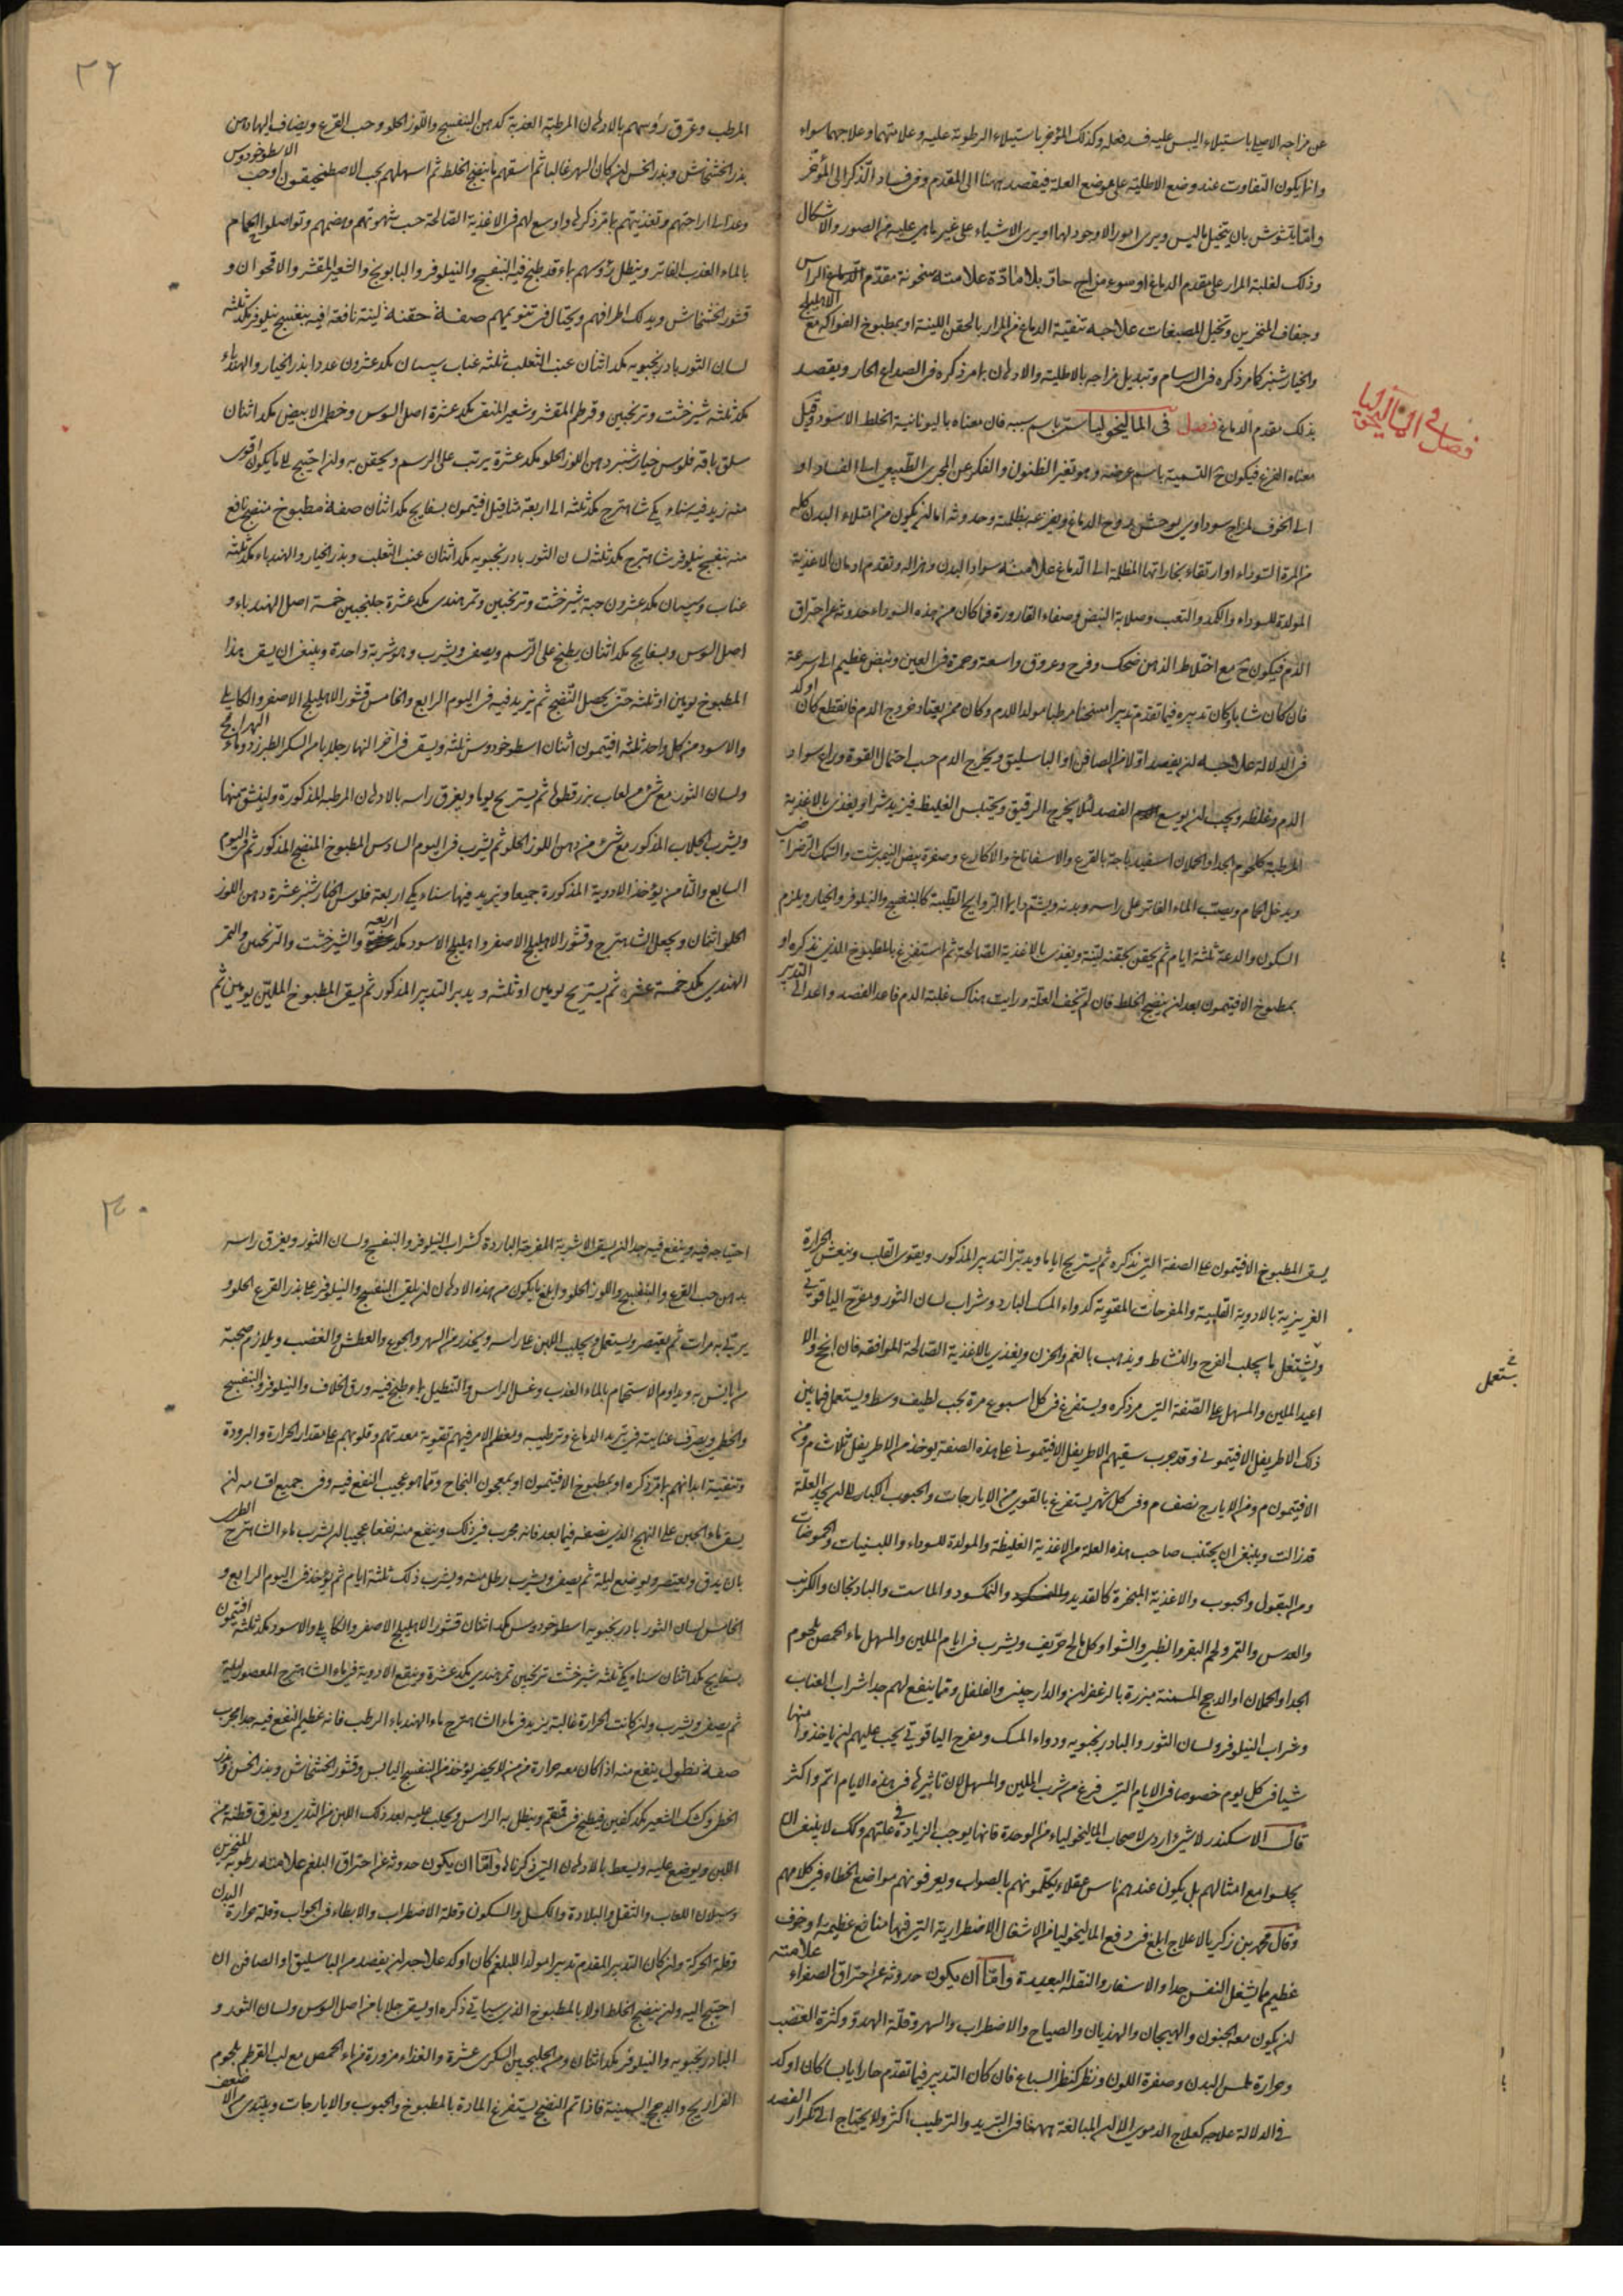 عن مزاجه الاصلي باستيلاء اليبس عليه فسد فعله وكذلك المؤخر باستيلاء الرطوبة عليه وعلامتهما وعلاجهما سواء
وانما يكون التفاوت عند وضع الاطلية على موضع العلة فيقصد ههنا الى المقدم وفي فساد الذكر الى المؤخر
واما يتشوش بان يتخيل ما ليس ويرى امورا لا وجود لها او يرى الاشياء على غير ما هي عليه من الصور والاشكال
وذلك لغلبة المرار على مقدم الدماغ او سوء مزاج حار بلا مادة علامته سخونة مقدم الراس
وجفاف المنخرين وتخيل المصبغات علاجه تنقية الدماغ من المرار بالحقن اللينة او بمطبوخ الفواكه مع الاهليلج
والخيارشنبر كما مر ذكره في السرسام وتبديل مزاجه بالاطلية والادهان مما مر ذكره في الصداع الحار ويقصد
بذلك مقدم الدماغ فصل في الماليخوليا سمي باسم سببه فان معناه باليونانية الخلط الاسود وقيل
فصل في الماليخوليا
معناه الفزع فيكون ح التسمية باسم عرضه وهو تغير الظنون والفكر عن المجرى الطبيعي الى الفساد او
الى الخوف لمزاج سوداوي يوحش روح الدماغ ويفزعه بظلمته وحدوثه اما ان يكون من امتلاء البدن كله
من المرة السوداء او ارتقاء بخاراتها المظلمة الى الدماغ علامته سواد البدن وهزاله وتقدم ادمان الاغذية
المولدة للسوداء والكمد والتعب وصلابة النبض وصفاء القارورة فما كان من هذه السوداء حدوثه عن احتراق
الدم فيكون ح مع اختلاط الذهن ضحك وفرح وعروق واسعة وحمرة في العين ونبض عظيم الى سرعة
فان كان شابا وكان تدبيره فيما تقدم تدبيرا مسخنا مرطبا مولدا للدم وكان ممن يعتاد خروج الدم فانقطع كان اوكد
في الدلالة علاجه ان يفصد اولا من الصافن او الباسليق ويخرج الدم حسب احتمال القوة وراع سواد
الدم وغلظه ويجب ان يوسع الفصد لئلا يخرج الرقيق ويحتبس الغليظ فيزيد شرا ويغذى بالاغذية
المرطبة كلحوم الجدا والحملان اسفيدباجة بالقرع والاسفاناخ والاكارع وصفرة بيض النيمبرشت والسمك الرضراضي
ويدخل الحمام ويصب الماء الفاتر على راسه وبدنه ويشم دايما الروايح الطيبة كالبنفسج والنيلوفر والخيار ويلزم
السكون والدعة ثلثة ايام ثم يحقن بحقنة لينة ويغذى بالاغذية الصالحة ثم استفرغ بالمطبوخ الذي نذكره او
بمطبوخ الافتيمون بعد ان ينضج الخلط فان لم تخف العلة ورايت هناك غلبة الدم فاعد الفصد واعد الى التدبير
٣٩
المرطب وعرق رؤسهم بالادهان المرطبة العذبة كدهن البنفسج واللوز الحلو وحب القرع ويضاف اليها دهن
بذر الخشخاش وبذر الخس ان كان السهر غالبا ثم اسقهم ما ينضج الخلط ثم اسهلهم بحب الاصطمخيقون او حب الاسطوخودوس
وعد الى اراحتهم وتغذيتهم بما مر ذكره واوسع لهم في الاغذية الصالحة حسب شهوتهم وهضمهم وتواصلوا الحمام
بالماء العذب الفاتر وينطل رؤسهم بماء قد طبخ فيه البنفسج والنيلوفر والبابونج والشعير المقشر والاقحوان و
قشور الخشخاش ويدلك اطرافهم ويحتال في تنويمهم صفة حقنة لينة نافعة فيه بنفسج نيلوفر مكد ثلثة
لسان الثور بادرنجبويه مكد اثنان عنب الثعلب ثلثة عناب سپستان مكد عشرون عددا بذر الخيار والهندباء
مكد ثلثة شيرخشت وترنجبين وقرطم المقشر وشعير المنقى مكد عشرة اصل السوس وخطمى الابيض مكد اثنان
سلق باقة فلوس خيارشنبر دهن اللوز الحلو مكد عشرة يرتب على الرسم ويحقن به وان احتيج الى ما يكون اقوى
منه زيد فيه سناء مكي شاهترج مكد ثلثة الى اربعة مثاقيل افتيمون بسفايج مكد اثنان صفة مطبوخ منضج نافع
منه بنفسج نيلوفر شاهترج مكد ثلثة لسان الثور بادرنجبويه مكد اثنان عنب الثعلب وبذر الخيار والهندباء مكد ثلثة
عناب وسپستان مكد عشرون حبة شيرخشت وترنجبين وتمر هندى مكد عشرة جلنجبين خمسة اصل الهندباء و
اصل السوس وبسفايج مكد اثنان يطبخ على الرسم ويصفى ويشرب وهو شربة واحدة وينبغي ان يسقى هذا
المطبوخ يومين او ثلثة حتى يحصل النضج ثم يزيد فيه في اليوم الرابع والخامس قشور الاهليلج الاصفر والكابلي
والاسود من كل واحد ثلثة افتيمون اثنان اسطوخودوس ثلثة ويسقى في اخر النهار جلابا من السكر الطبرزد وماء
ولسان الثور مع شئ من لعاب بزرقطونا ثم يستريح يوما ويغرق راسه بالادهان المرطبة المذكورة وليتنشق منها
ويشرب الجلاب المذكور مع شئ من دهن اللوز الحلو ثم يشرب في اليوم السادس المطبوخ المنضج المذكور ثم في اليوم
السابع والثامن يؤخذ الادوية المذكورة جميعا ويزيد فيها سناء مكي اربعة فلوس الخيارشنبر عشرة دهن اللوز
الحلو اثنان ويجعل الشاهترج وقشور الاهليلج الاصفر واهليلج الاسود مكد اربعة والشيرخشت والترنجبين والتمر
الهندي مكد خمسة عشر ثم يستريح يومين او ثلثة ويدبر التدبير المذكور ثم يسقى المطبوخ الملين يومين ثم
يسقى المطبوخ الافتيمون على الصفة التي نذكره ثم يستريح اياما ويدبر التدبير المذكور ويقوى القلب وينعش الحرارة
الغريزية بالادوية القلبية والمفرحات المقوية كدواء المسك البارد وشراب لسان الثور ومفرح الياقوتي
ويشتغل بما يجلب الفرح والنشاط ويذهب بالغم والحزن ويغذى بالاغذية الصالحة الموافقة فان انجح والا
اعيد الملين والمسهل على الصفة التي مر ذكره ويستفرغ في كل اسبوع مرة بحب لطيف وسط ويستعمل فيما بين
يستعمل
ذلك الاطريفل الافتيموني وقد جرب سقيهم الاطريفل الافتيموني على هذه الصفة يوخذ من الاطريفل ثلاث م ومن
الافتيمون م ومن الايارج نصف م وفي كل شهر يستفرغ بالقوي من الايارجات والحبوب الكبار الى ان يجد العلة
قد زالت وينبغي ان يجتنب صاحب هذه العلة من الاغذية الغليظة والمولدة للسوداء واللبنيات والحموضات
ومن البقول والحبوب والاغذية المبخرة كالقديد والنمكسود والماست والبادنجان والكرنب
والعدس والتمر ولحم البقر والظبي والشوا وكل مالح حريف ويشرب في ايام الملين والمسهل ماء الحمص بلحوم
الجدا والحملان او الدجج المسمنة مبزرة بالزعفران والدارچيني والفلفل ومما ينفع لهم جدا شراب العناب
وشراب النيلوفر ولسان الثور والبادرنجبويه ودواء المسك ومفرح الياقوتي يجب عليهم ان ياخذوا منها
شيا في كل يوم خصوصا في الايام التي فرغ من شرب الملين والمسهل لان تاثيرها في هذه الايام اتم واكثر
قال الاسكندر لا شئ اردى لاصحاب الماليخولياء من الوحدة فانها يوجب الزيادة في علتهم وكك لا ينبغي ان
يجلسوا مع امثالهم بل يكون عندهم ناس عقلاء يكلمونهم بالصواب ويعرفونهم مواضع الخطاء في كلامهم
وقال محمد بن زكريا لا علاج ابلغ في دفع الماليخوليا من الاشغال الاضطرارية التي فيها منافع عظيمة او خوف
عظيم مما يشغل النفس جدا والاسفار والنقلة البعيدة واما ان يكون حدوثه عن احتراق الصفراء علامته
ان يكون معه الجنون والهيجان والهذيان والصياح والاضطراب والسهر وقلة الهدوّ وكثرة الغضب
وحرارة ملمس البدن وصفرة اللون ونظر كنظر السباع فان كان التدبير فيما تقدم حارا يابسا كان اوكد
في الدلالة علاجه كعلاج الدموي الا ان المبالغة ههنا في التبريد والترطيب اكثر ولا يحتاج الى تكرار الفصد
٣٠
احتياجه فيه وينفع فيه جدا ان يسقى الاشربة المفرحة الباردة كشراب النيلوفر والبنفسج ولسان الثور ويغرق راسه
بدهن حب القرع والبنفسج واللوز الحلو وابلغ ما يكون من هذه الادهان ان يلقى البنفسج والنيلوفر على بذر القرع الحلو و
يربى به مرات ثم يعتصر ويستعمل ويحلب اللبن على راسه ويحذر من السهر والجوع والعطش والغضب ويلازم صحبة
من يانس به ويداوم الاستحمام بالماء العذب وغسل الراس والتنطيل بماء طبخ فيه ورق الخلاف والنيلوفر والبنفسج
والخطمي ويصرف عنايته في تبريد الدماغ وترطيبه ومعظم الامر فيهم تقوية معدتهم وقلوبهم على مقدار الحرارة والبرودة
وتنقية ابدانهم بما مر ذكره او بمطبوخ الافتيمون او بمعجون النجاح ومما هو عجيب النفع فيه وفي جميع اقسامه ان
يسقى ماء الجبن على النهج الذي نصفه فيما بعد فانه مجرب في ذلك وينفع منه نفعا عجيبا ان يشرب ماء الشاهترج الطري
بان يدق ويعتصر ويوضع ليلة ثم يصفى ويشرب رطل منه ويشرب ذلك ثلثة ايام ثم يؤخذ في اليوم الرابع و
الخامس لسان الثور بادرنجبويه اسطوخودوس مكد اثنان قشور الاهليلج الاصفر والكابلي والاسود مكد ثلثة افتيمون
بسفايج مكد اثنان سناء مكي ثلثة شيرخشت ترنجبين تمر هندي مكد عشرة وينقع الادوية في ماء الشاهترج المعصور ليلة
ثم يصفى ويشرب وان كانت الحرارة غالبة يزيد في ماء الشاهترج ماء الهندباء الرطب فانه عظيم النفع فيه جدا مجرب
صفة نطول ينفع منه اذا كان معه حرارة يؤخذ من البنفسج اليابس وقشور الخشخاش وبذر الخس وبذر
الخطمى وكشك الشعير مكد كفين فيطبخ في قمقم وينطل به الراس ويحلب عليه بعد ذلك اللبن من الثدي ويغرق قطنة من
اللبن ويوضع عليه ويسعط بالادهان التي ذكرناه واما ان يكون حدوثه عن احتراق البلغم علامته رطوبة المنخرين
وسيلان اللعاب والثقل والبلادة والكسل والسكون وقلة الاضطراب والابطاء في الجواب وقلة حرارة البدن
وقلة الحركة وان كان التدبير المقدم تدبيرا مولدا للبلغم كان اوكد علاجه ان يفصد من الباسليق او الصافن ان
احتيج اليه وان ينضج الخلط اولا بالمطبوخ الذي سياتي ذكره او يسقى جلابا من اصل السوس ولسان الثور و
البادرنجبويه والنيلوفر مكد اثنان ومن الجلنجبين السكرى عشرة والغذاء مزورة من ماء الحمص مع لب القرطم بلحوم
الفراريج والدجج السمينة فاذا تم النضج يستفرغ المادة بالمطبوخ والحبوب والايارجات ويبتدى من الاضعف